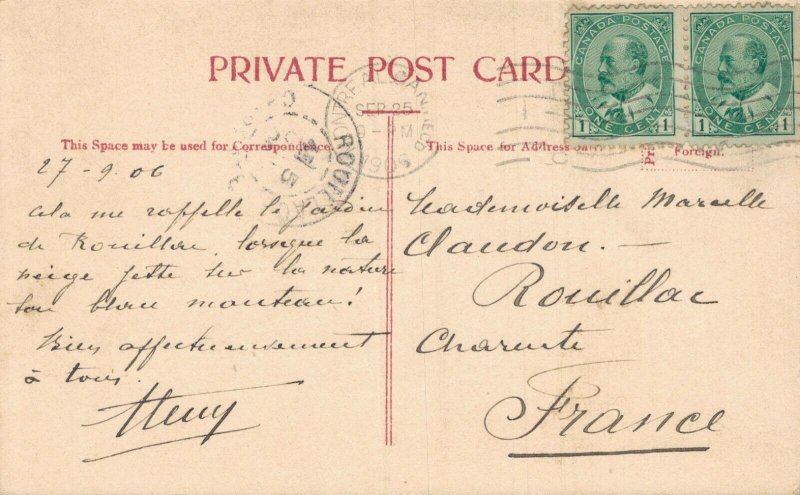 CANADA POSTAGE CANADA POSTAGE
1 ONE CENT 1 1 ONE CENT 1
PRIVATE POST CARD
MONTREAL, CANADA
SEP 25
ROUILLAC
This Space may be used for Correspondence.
27-9.06
Cela me rappelle le jardin
de Rouillac lorsque la
neige jette sur la nature
son blanc manteau!
Bien affectueusement
à tous.
Henry
This Space for Address
Foreign.
Mademoiselle Marcelle
Claudon.
Rouillac
Charente
France